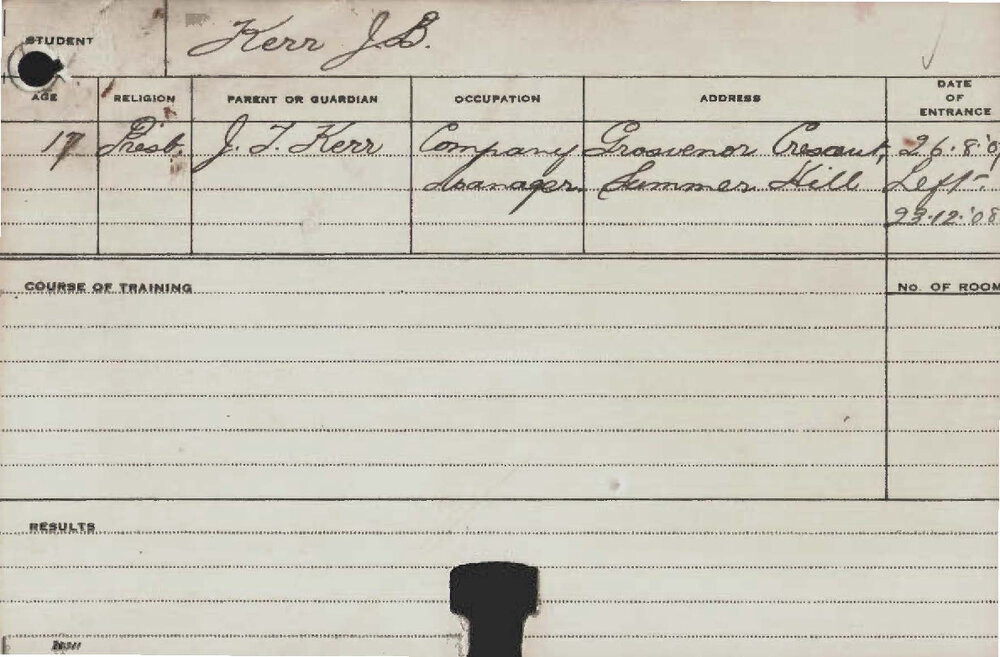 STUDENT Kerr J.B.
AGE RELIGION PARENT OR GUARDIAN OCCUPATION ADDRESS DATE OF ENTRANCE
17 Presb. J. T. Kerr Company Grosvenor Crescent, 26.8.'07
Manager. Summer Hill Left
23.12.'08
COURSE OF TRAINING No. OF ROOM
RESULTS